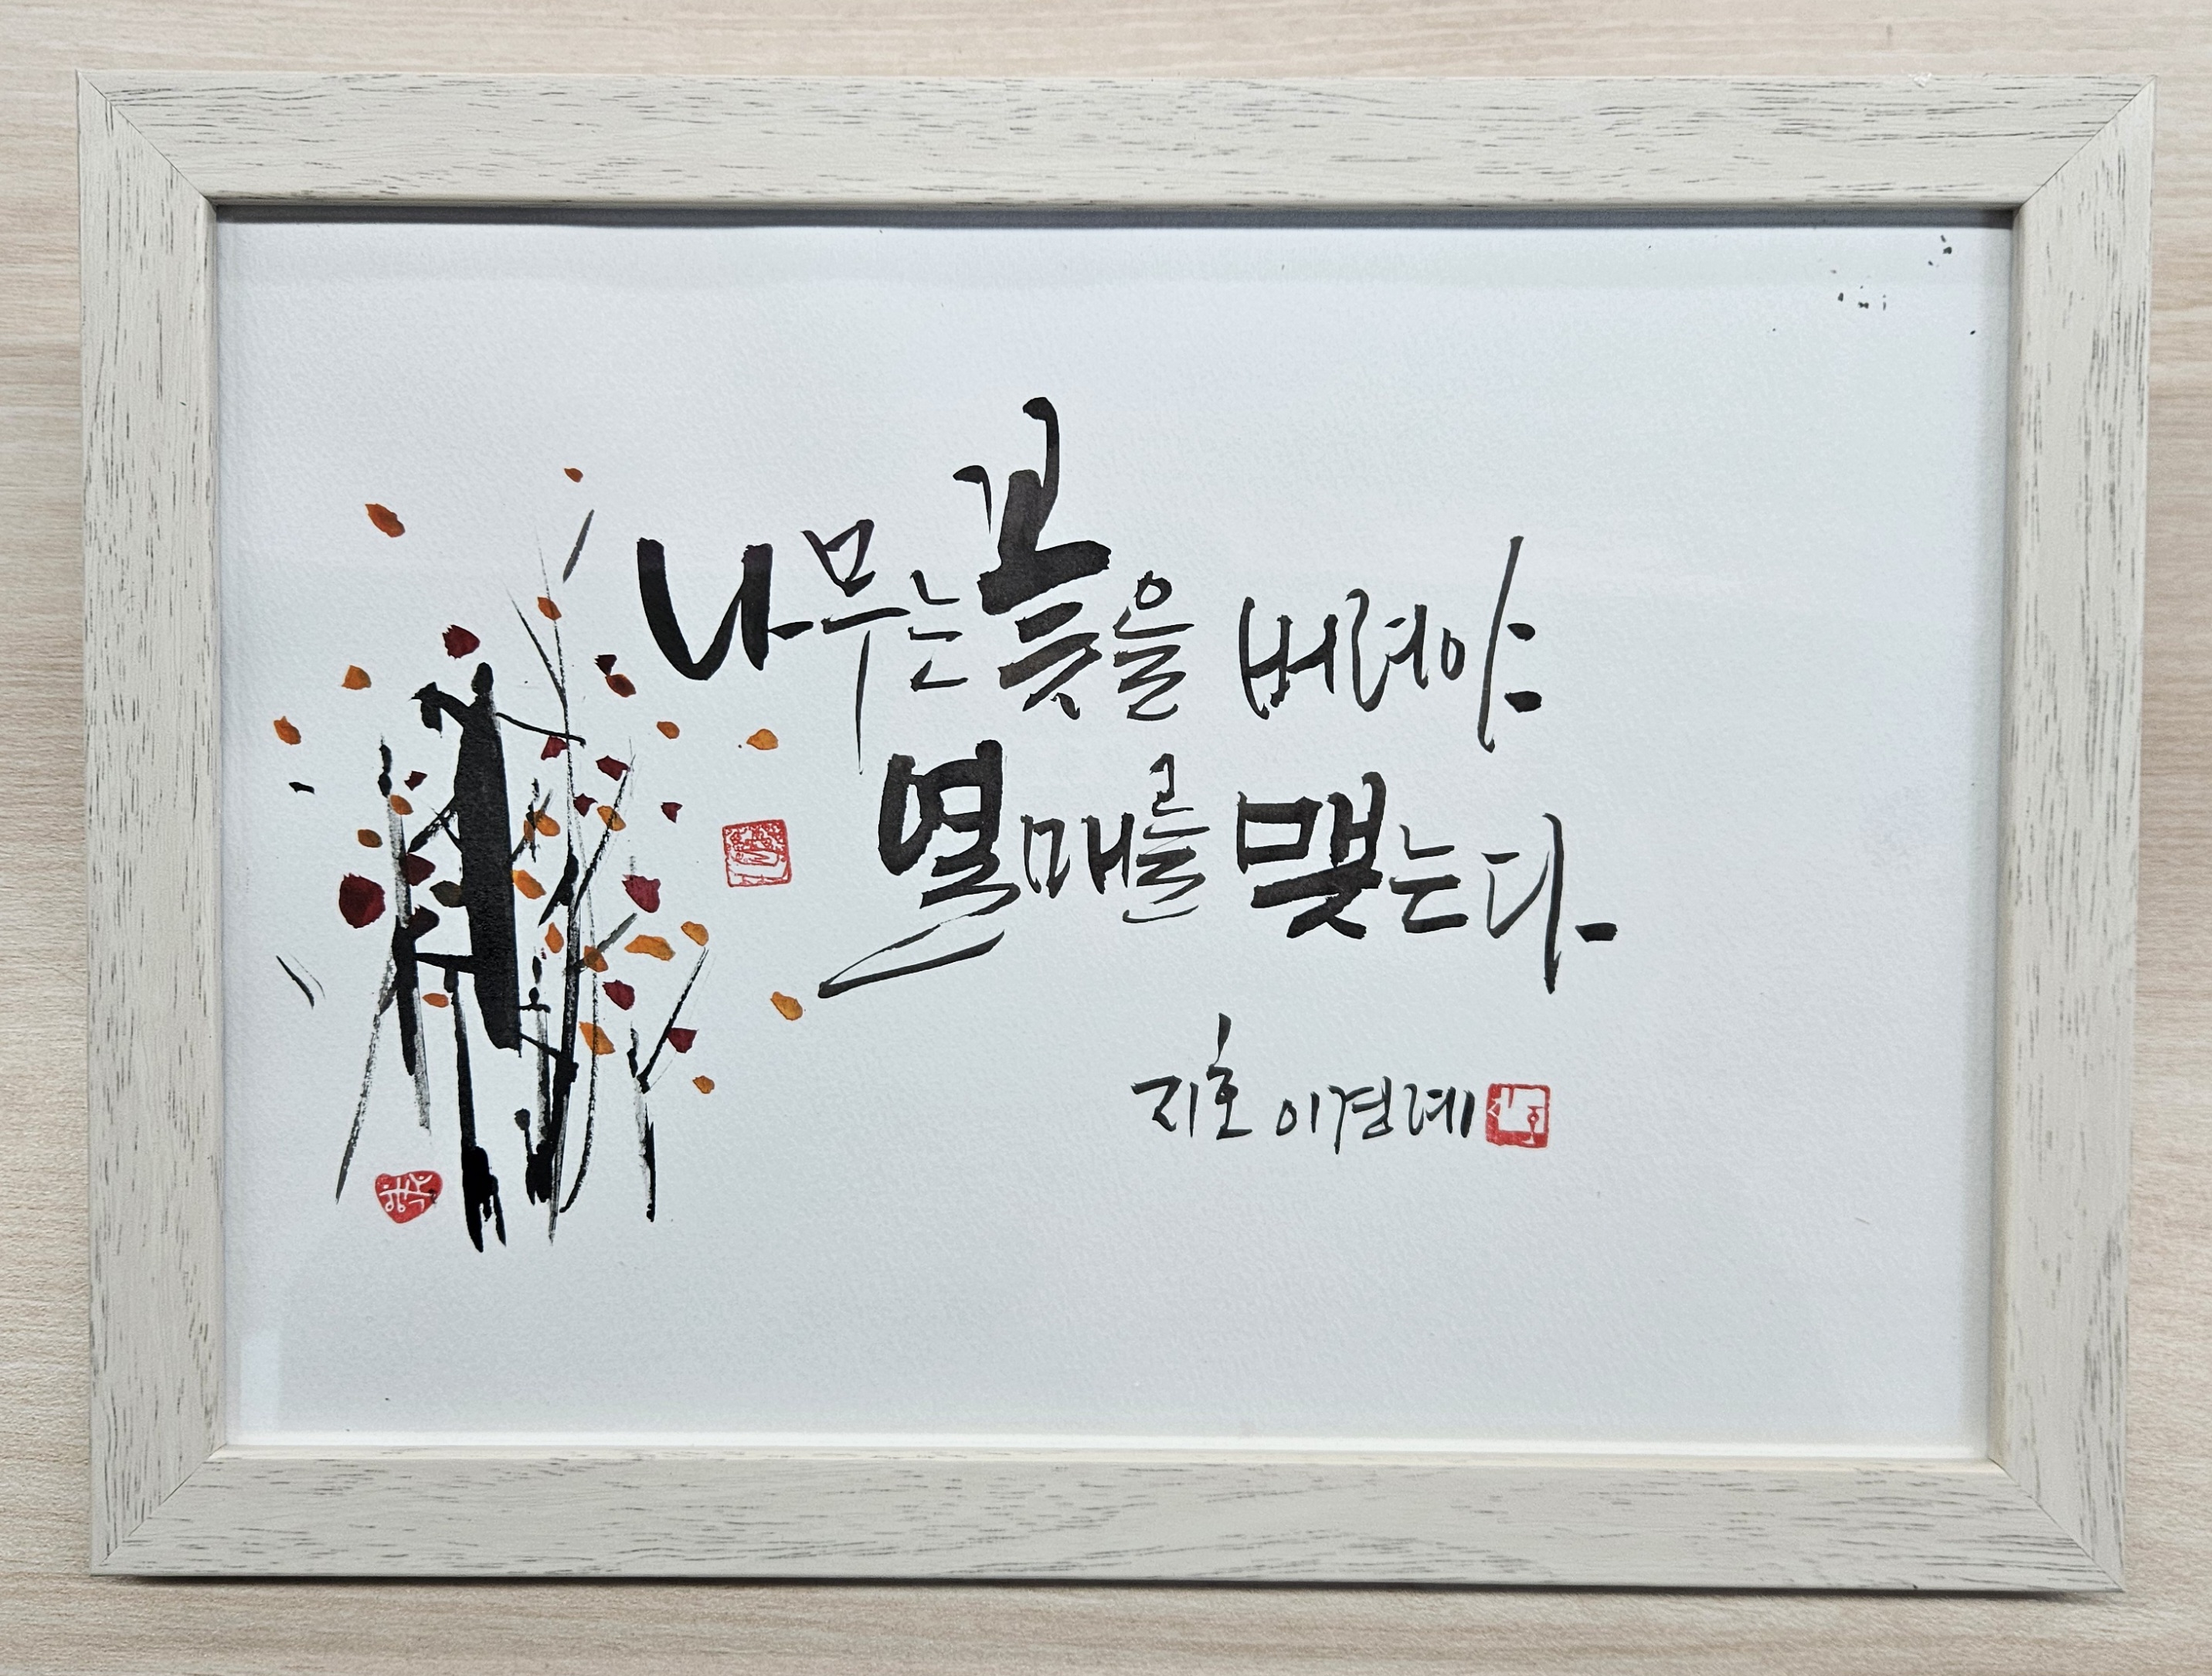 나무는 꽃을 버려야
열매를 맺는다
지호 이경례